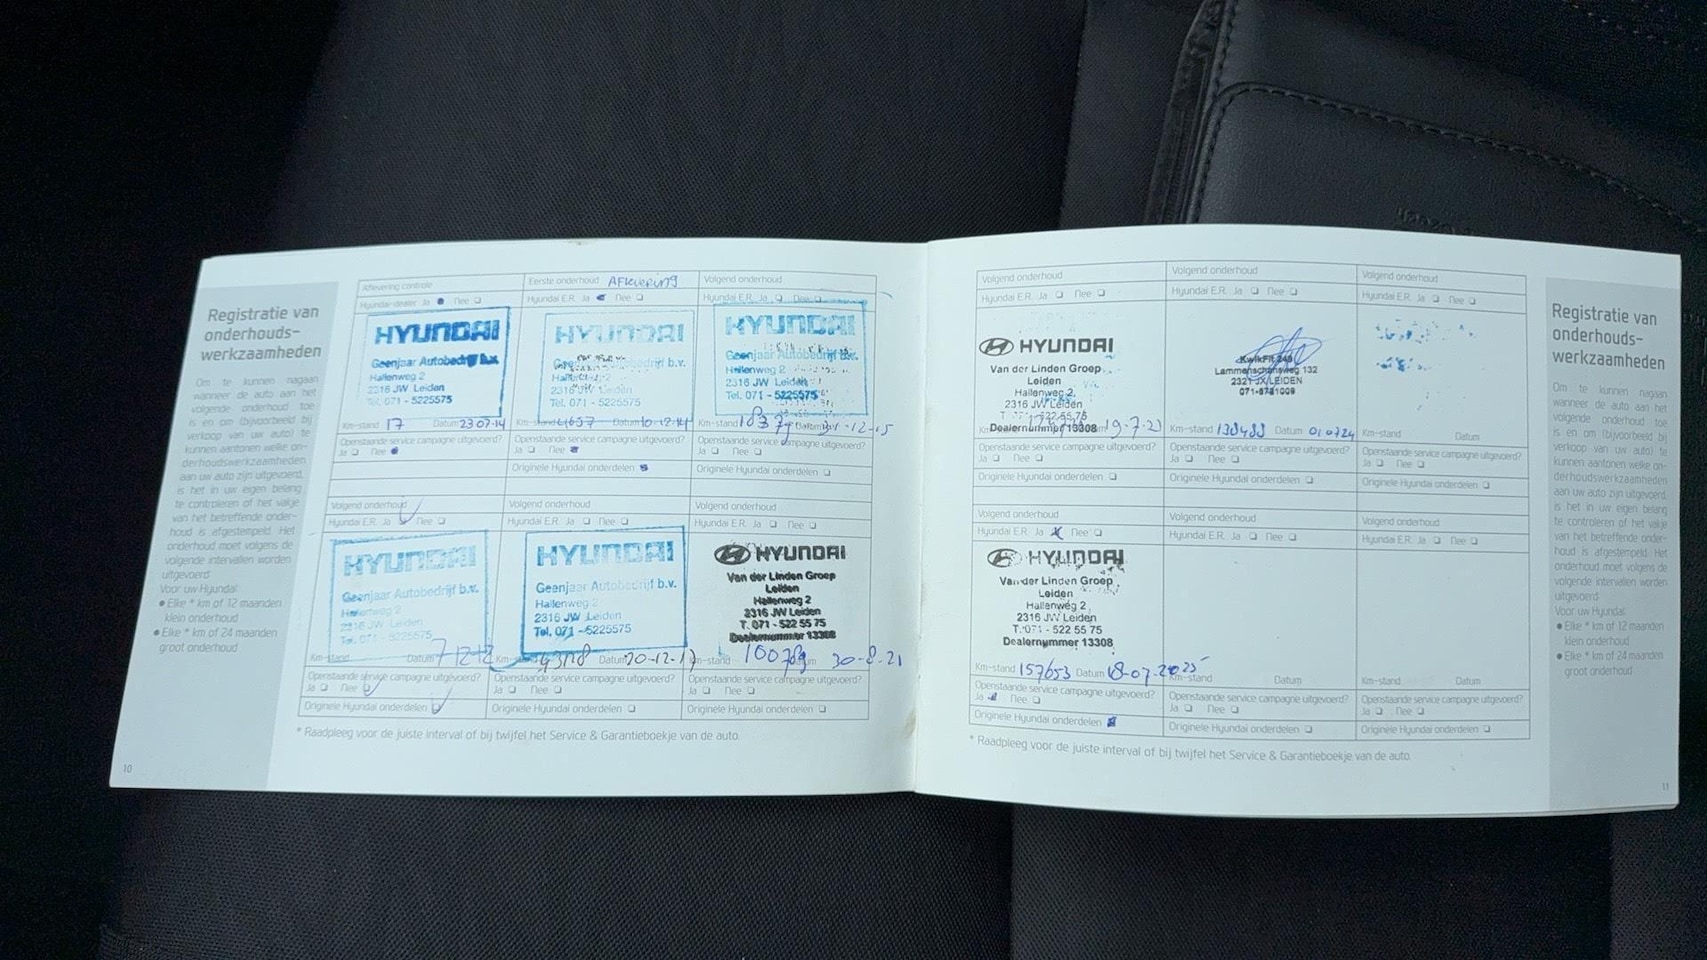 Registratie van
onderhouds-
werkzaamheden
Om te kunnen nagaan
wanneer de auto aan het
volgende onderhoud toe
is en om (bijvoorbeeld bij
verkoop van uw auto) te
kunnen aantonen welke on-
derhoudswerkzaamheden
aan uw auto zijn uitgevoerd,
is het in uw eigen belang
te controleren of het vakje
van het betreffende onder-
houd is afgestempeld. Het
onderhoud moet volgens de
volgende intervallen worden
uitgevoerd:
Voor uw Hyundai:
● Elke * km of 12 maanden
klein onderhoud
● Elke * km of 24 maanden
groot onderhoud
10
Aflevering controle
Hyundai-dealer Ja Nee
HYUNDAI
Geenjaar Autobedrijf b.v.
Hallenweg 2
2316 JW Leiden
Tel. 071 - 5225575
Km-stand 17 Datum 23 07-14
Openstaande service campagne uitgevoerd?
Ja Nee
Eerste onderhoud AFlevering
Hyundai E.R. Ja Nee
HYUNDAI
Geenjaar Autobedrijf b.v.
Hallenweg 2
2316 JW Leiden
Tel. 071 - 5225575
Km-stand Datum 10-12-14
Openstaande service campagne uitgevoerd?
Ja Nee
Originele Hyundai onderdelen
Volgend onderhoud
Hyundai E.R. Ja Nee
HYUNDAI
Geenjaar Autobedrijf b.v.
Hallenweg 2
2316 JW Leiden
Tel. 071 - 5225575
Km-stand Datum
Openstaande service campagne uitgevoerd?
Ja Nee
Originele Hyundai onderdelen
Volgend onderhoud
Hyundai E.R. Ja Nee
HYUNDAI
Geenjaar Autobedrijf b.v.
Hallenweg 2
2316 JW Leiden
Tel. 071 - 5225575
Km-stand Datum
Openstaande service campagne uitgevoerd?
Ja Nee
Originele Hyundai onderdelen
Volgend onderhoud
Hyundai E.R. Ja Nee
HYUNDAI
Geenjaar Autobedrijf b.v.
Hallenweg 2
2316 JW Leiden
Tel. 071 - 5225575
Datum
Openstaande service campagne uitgevoerd?
Ja Nee
Originele Hyundai onderdelen
Volgend onderhoud
Hyundai E.R. Ja Nee
HYUNDAI
Van der Linden Groep
Leiden
Hallenweg 2
2316 JW Leiden
T. 071 - 522 55 75
Dealernummer 13308
Km-stand 100789 Datum 30-8-21
Openstaande service campagne uitgevoerd?
Ja Nee
Originele Hyundai onderdelen
* Raadpleeg voor de juiste interval of bij twijfel het Service & Garantieboekje van de auto.
Volgend onderhoud
Hyundai E.R. Ja Nee
HYUNDAI
Van der Linden Groep
Leiden
Hallenweg 2
2316 JW Leiden
T. 071 - 522 55 75
Dealernummer 13308
Openstaande service campagne uitgevoerd?
Ja Nee
Originele Hyundai onderdelen
Volgend onderhoud
Hyundai E.R. Ja Nee
KwikFit 249
Lammenschansweg 132
2321 JX LEIDEN
Km-stand 138488 Datum 010724
Openstaande service campagne uitgevoerd?
Ja Nee
Originele Hyundai onderdelen
Volgend onderhoud
Hyundai E.R. Ja Nee
Km-stand Datum
Openstaande service campagne uitgevoerd?
Ja Nee
Originele Hyundai onderdelen
Volgend onderhoud
Hyundai E.R. Ja Nee
HYUNDAI
Van der Linden Groep
Leiden
Hallenweg 2
2316 JW Leiden
T. 071 - 522 55 75
Dealernummer 13308
Km-stand 157653 Datum 18-07-2025
Openstaande service campagne uitgevoerd?
Ja Nee
Originele Hyundai onderdelen
Volgend onderhoud
Hyundai E.R. Ja Nee
Km-stand Datum
Openstaande service campagne uitgevoerd?
Ja Nee
Originele Hyundai onderdelen
Volgend onderhoud
Hyundai E.R. Ja Nee
Km-stand Datum
Openstaande service campagne uitgevoerd?
Ja Nee
Originele Hyundai onderdelen
* Raadpleeg voor de juiste interval of bij twijfel het Service & Garantieboekje van de auto.
Registratie van
onderhouds-
werkzaamheden
Om te kunnen nagaan
wanneer de auto aan het
volgende onderhoud toe
is en om (bijvoorbeeld bij
verkoop van uw auto) te
kunnen aantonen welke on-
derhoudswerkzaamheden
aan uw auto zijn uitgevoerd,
is het in uw eigen belang
te controleren of het vakje
van het betreffende onder-
houd is afgestempeld. Het
onderhoud moet volgens de
volgende intervallen worden
uitgevoerd:
Voor uw Hyundai:
● Elke * km of 12 maanden
klein onderhoud
● Elke * km of 24 maanden
groot onderhoud
11